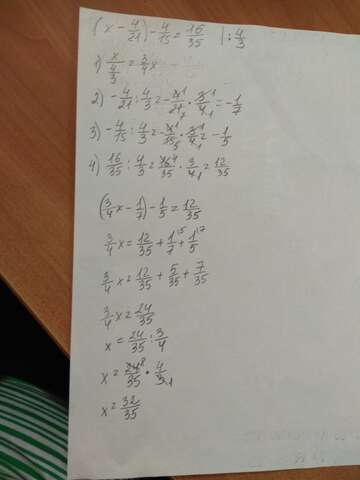 (x - 4/21) - 4/15 = 16/35 | : 4/3
1) x / 4/3 = 3/4 x
2) - 4/21 : 4/3 = - 4¹/21₇ · 3¹/4₁ = - 1/7
3) - 4/15 : 4/3 = - 4¹/15₅ · 3¹/4₁ = - 1/5
4) 16/35 : 4/3 = 16⁴/35 · 3/4₁ = 12/35
(3/4 x - 1/7) - 1/5 = 12/35
3/4 x = 12/35 + 1/7 \5 + 1/5 \7
3/4 x = 12/35 + 5/35 + 7/35
3/4 x = 24/35
x = 24/35 : 3/4
x = 24⁸/35 · 4/3₁
x = 32/35